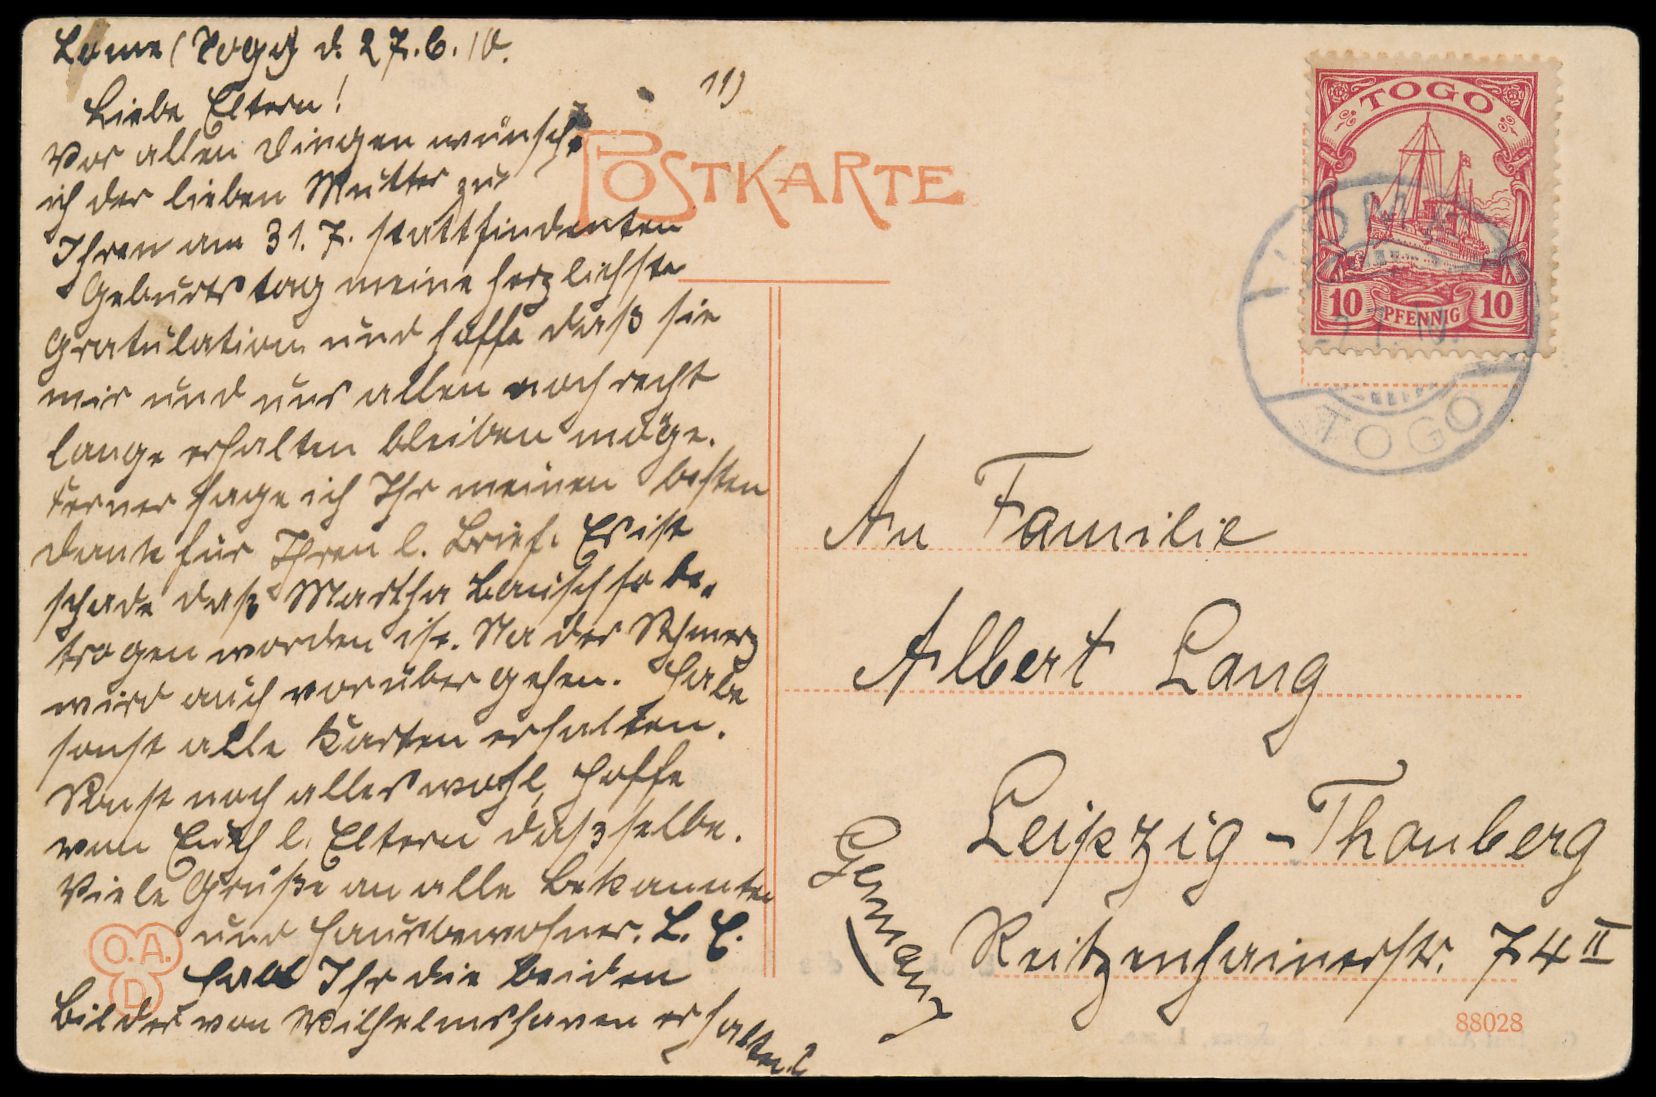 Lome (Togo) d. 27.6.10.
11)
Liebe Eltern!
Vor allen Dingen wünsche
ich der lieben Mutter zu
Ihren am 31. 7. stattfindenten
Geburtstag meine herzlichste
Gratulation und hoffe daß sie
mir und uns allen noch recht
lange erhalten bleiben möge.
Ferner sage ich Ihr meinen besten
Dank für Ihren l. Brief. Es ist
schade daß Martha Bausch so be-
trogen worden ist. Na der Schmerz
wird auch vorüber gehen. Habe
sonst alle Karten erhalten.
Sonst noch alles wohl, hoffe
von Euch l. Eltern daßselbe.
Viele Grüße an alle Bekannten
und Hausbewohner. L. E.
habt Ihr die beiden
Bilder von Wilhelmshaven erhalten?
POSTKARTE
TOGO
10 PFENNIG 10
LOME
TOGO
An Familie
Albert Lang
Leipzig-Thonberg
Reitzenhainerstr. 74 II
Germany
O.A.
D
88028